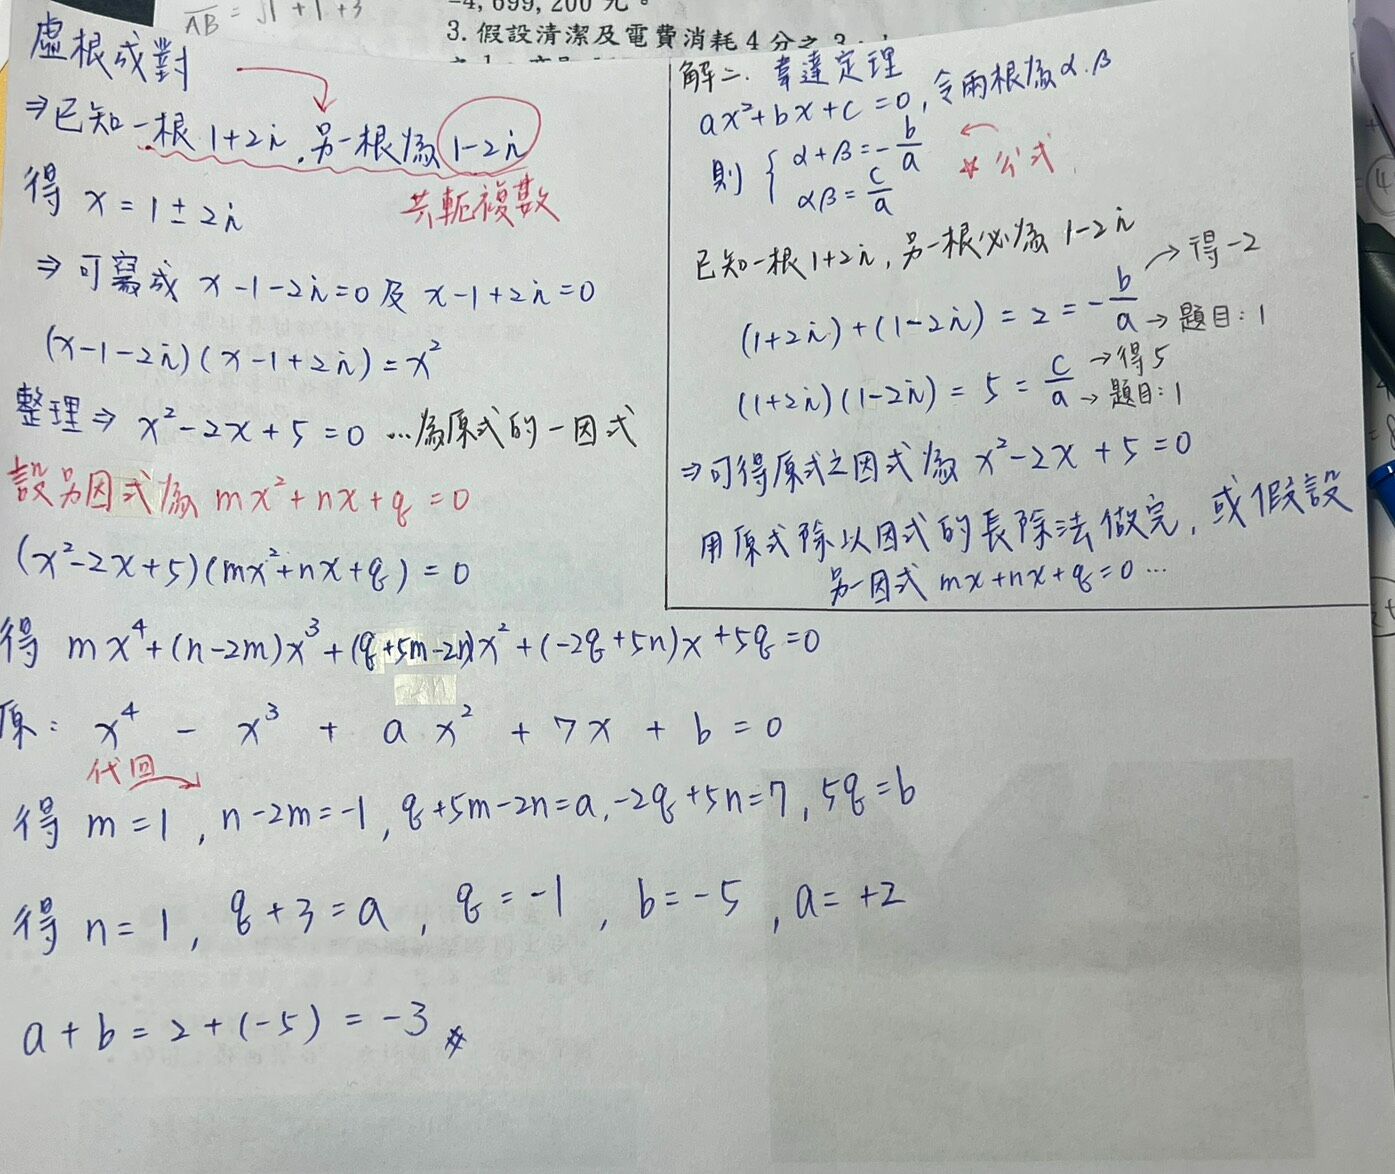 AB = √1 + 1 + 3
-4,699,200 元。
3. 假設清潔及電費消耗 4 分之 3
虛根成對
⇒已知一根 1+2i, 另一根為 1-2i
共軛複數
得 x = 1 ± 2i
⇒ 可寫成 x-1-2i=0 及 x-1+2i=0
(x-1-2i)(x-1+2i) = x²
整理⇒ x²-2x+5=0 …為原式的一因式
設另因式為 mx²+nx+q=0
(x²-2x+5)(mx²+nx+q)=0
得 mx⁴+(n-2m)x³+(q+5m-2n)x²+(-2q+5n)x+5q=0
原: x⁴ - x³ + a x² + 7x + b = 0
代回
得 m=1, n-2m=-1, q+5m-2n=a, -2q+5n=7, 5q=b
得 n=1, q+3=a, q=-1, b=-5, a=+2
a+b=2+(-5)=-3
解二. 韋達定理
ax²+bx+c=0, 令兩根為α.β
則 { α+β=-b/a
αβ=c/a
← ☆公式
已知一根1+2i, 另一根必為 1-2i
(1+2i)+(1-2i)=2=-b/a →得-2 →題目:1
(1+2i)(1-2i)=5=c/a →得5 →題目:1
⇒可得原式之因式為 x²-2x+5=0
用原式除以因式的長除法做完, 或假設
另一因式 mx+nx+q=0 …